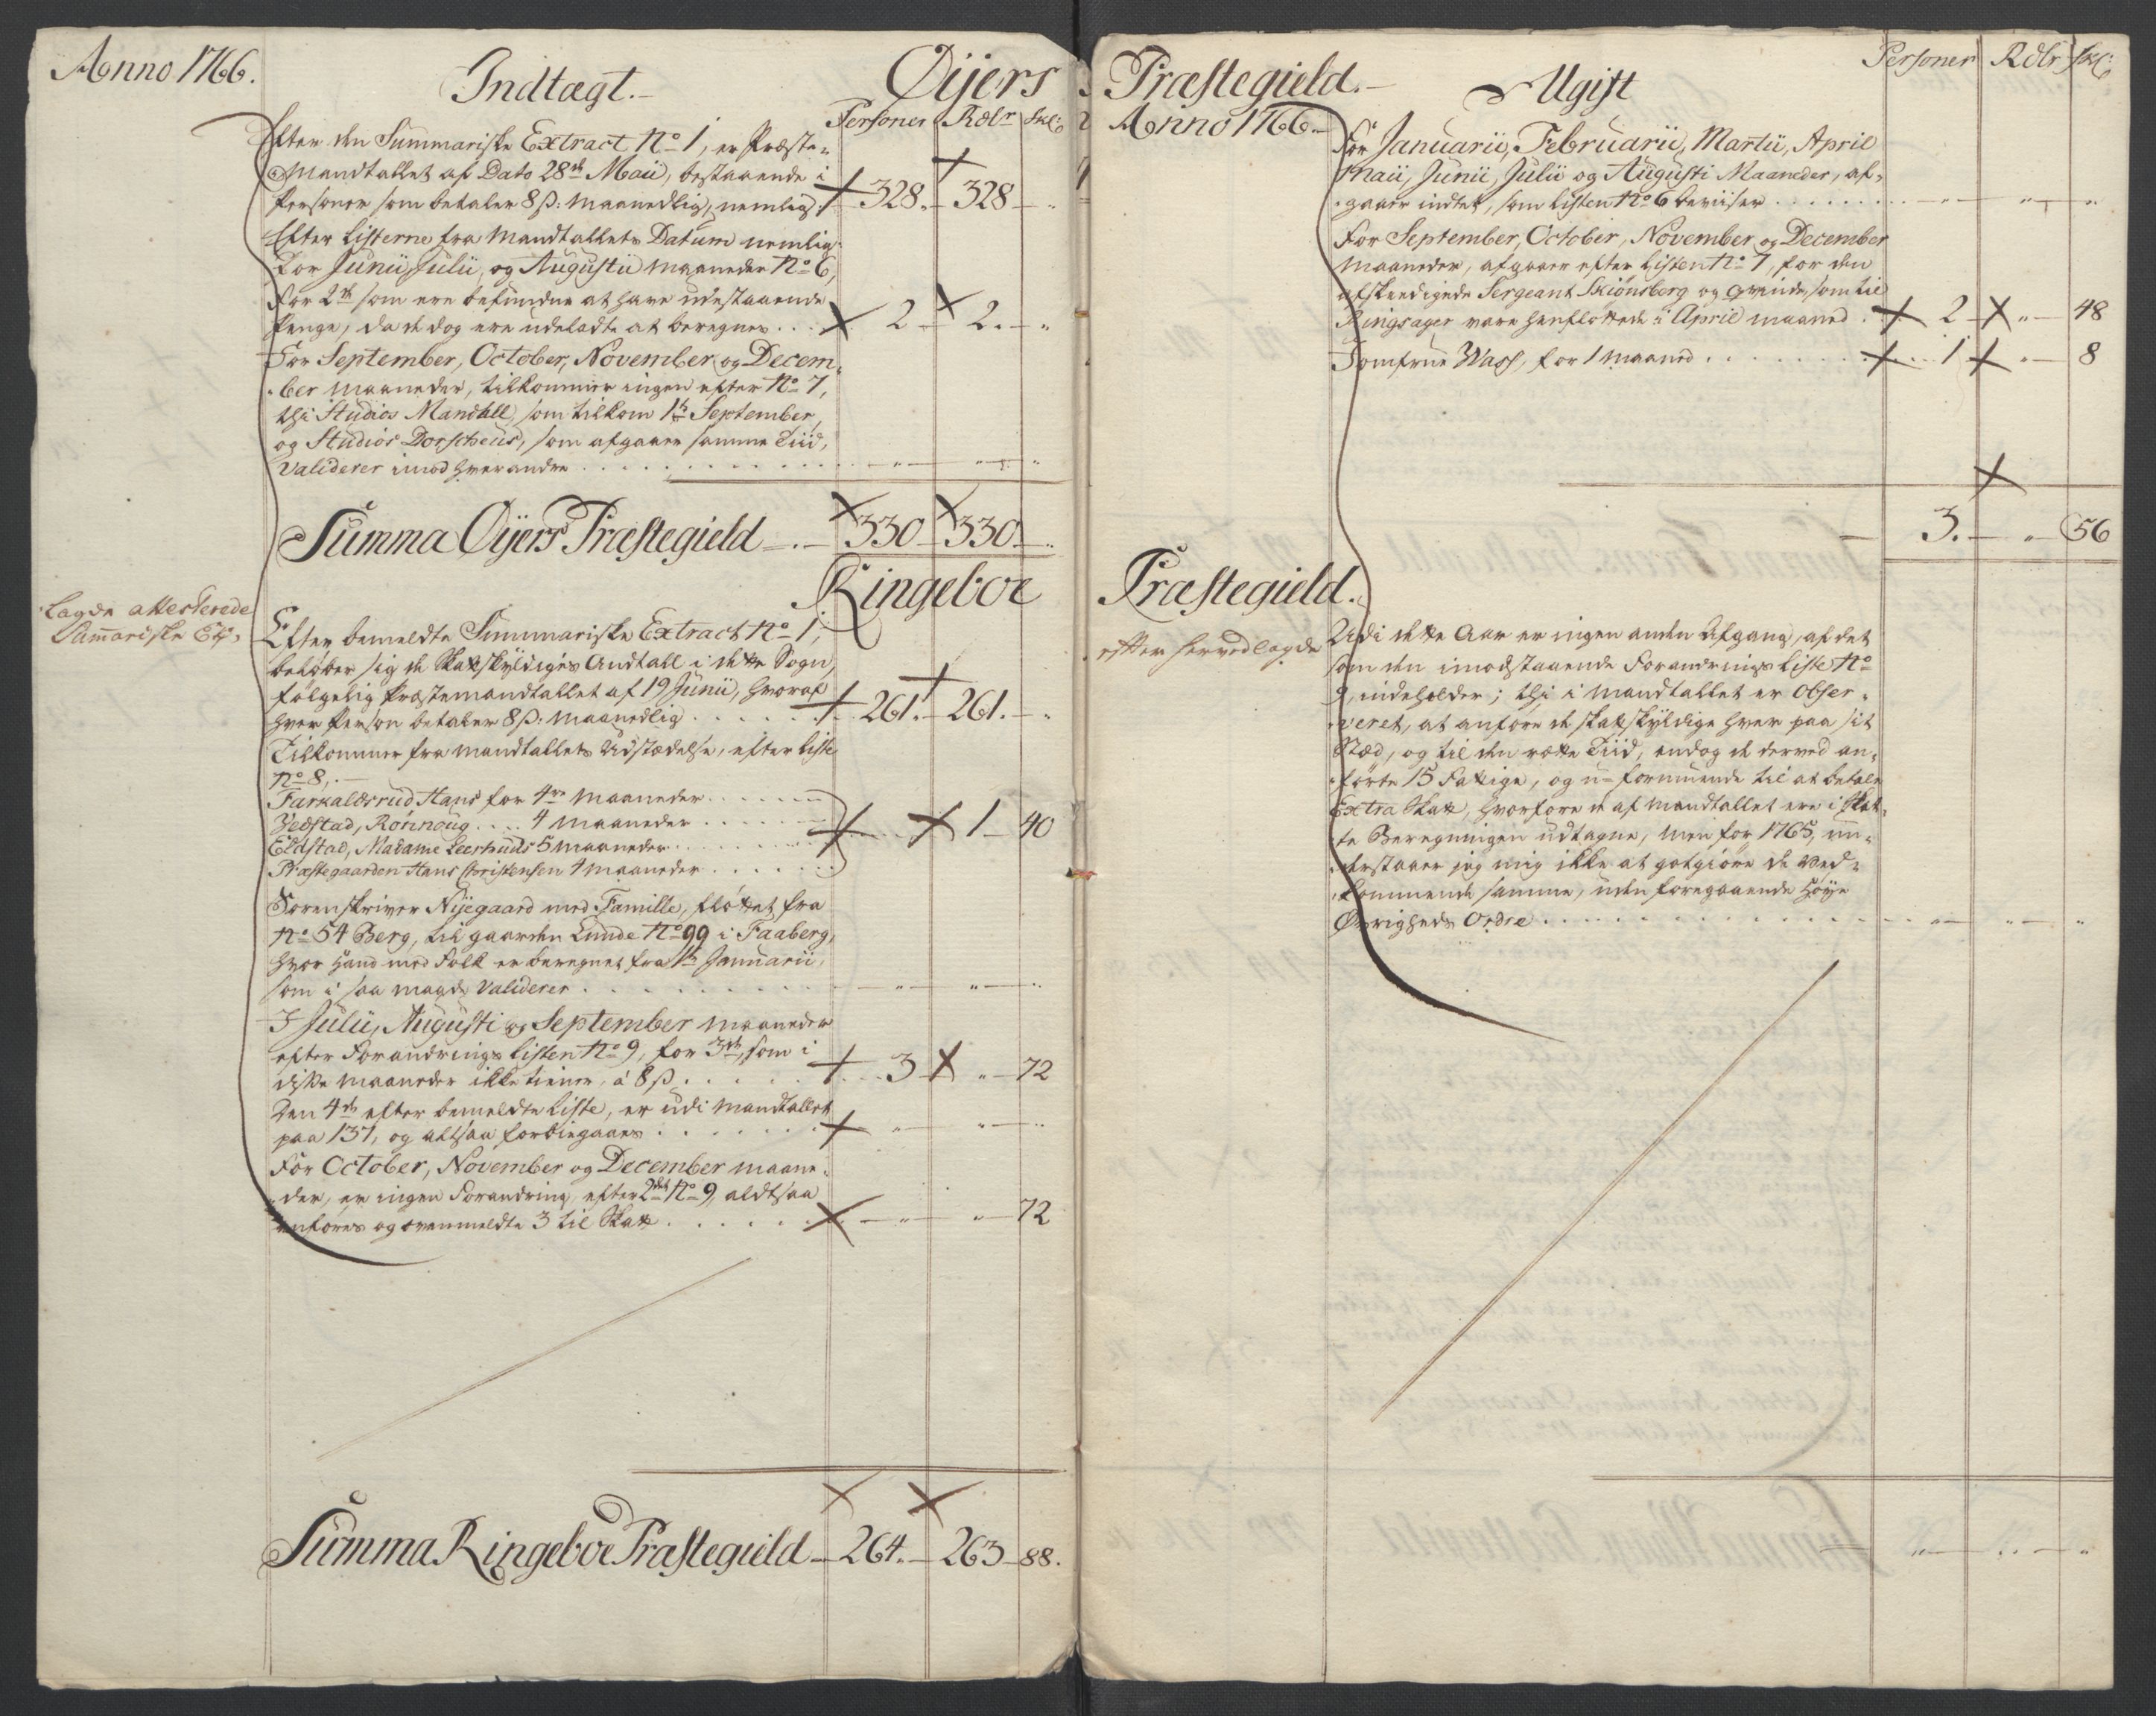 Anno 1766.
Indtægt.
Øijers
Personer Rdlr skl:
Efter den Summariske Extract No 1, er Præste-
Mandtallet af Dato 28de Maii, bestaaende i
Personer som betaler 8 s: maanedlig, nemlig 328. 328
Efter Listerne fra Mandtallets Datum nemlig
For Junii, Julii, og Augustii maaneder No 6,
for 2de som ere befundne at have udestaaende
Penge, da de dog ere udeladte at beregnes . . . 2 2.
For September, October, November og Decem-
ber maaneder, tilkommer ingen efter No 7,
thi Studios Mandall, som tilkom 1te September,
og Studios Dorscheus, som afgaaer samme Tiid,
Validerer imod hverandre
Summa Øijers Præstegield 330 330.
Ringeboe
Lagde attesterede
Sumariske Ext:
Efter bemeldte Summariske Extract No 1,
beløber sig de Skatskyldiges Andtall i dette Sogn,
følgelig Præstemandtallet af 19 Junii, hvoraf
hver Person betaler 8 s: maanedlig . . . 261. 261.
Tilkommer fra mandtallets Udstædelse, efter Liste
No 8,
Farkaldsrud Hans for 4re maaneder
Vedstad, Rønnoug . . . 4 maaneder
Eldstad, Madame Leerhuds 5 maaneder 1 40
Præstegaarden Hans Christensen 4 maaneder
Sorenskriver Nijegaard med Famille, fløttet fra
No 54 Berg, til gaarden Lunde No 99 i Faaberg,
hvor hand med Folk er beregnet fra 1te Januarii,
som i saa maade Validerer
I Julii, Augusti og September maaneder
efter Forandrings Listen No 9, for 3de, som i
diske maaneder ikke tiener, á 8 s 3 72
Den 4de efter bemeldte Liste, er udi mandtallet
paa 137, og altsaa forbiegaaes
For October, November og December maane-
der, er ingen Forandring, efter 2det No 9, aldtsaa
anføres og ovenmeldte 3 til Skatt 72
Summa Ringeboe Præstegield 264. 263 88.
Præstegield.
Anno 1766.
Ugift
Personer Rdlr skl:
For Januarii, Februarii, Martii, April
Maii, Junii, Julii og Augusti Maaneder, af-
gaaer indtet, som Listen No 6 beviiser
For September, October, November og December
maaneder, afgaaer efter Listen No 7, for den
afskeedigede Sergeant Skiønsberg og Qvinde, som til
Ringsager vare henfløttede i April maaned 2 48
Jomfrue Wass, for 1 maaned 1 8
3. 56
Præstegield.
efter herved lagde
Udi dette Aar er ingen anden Afgang, af det
som den imodstaaende Forandrings Liste No
9, indeholder; thi i mandtallet er obser-
veret, at anføre de skatskyldige hver paa sit
Stæd, og til den rætte Tiid, endog de derved an-
førte 15 Fattige, og u-formuende til at betale
Extra Skatt, hvorfore de af mandtallet ere i Skat-
te Beregningen udtagne, men for 1765, un-
derstaaer jeg mig ikke at gotgiøre de Ved-
kommende samme, uden foregaaende Høye
Øvrigheds Ordre